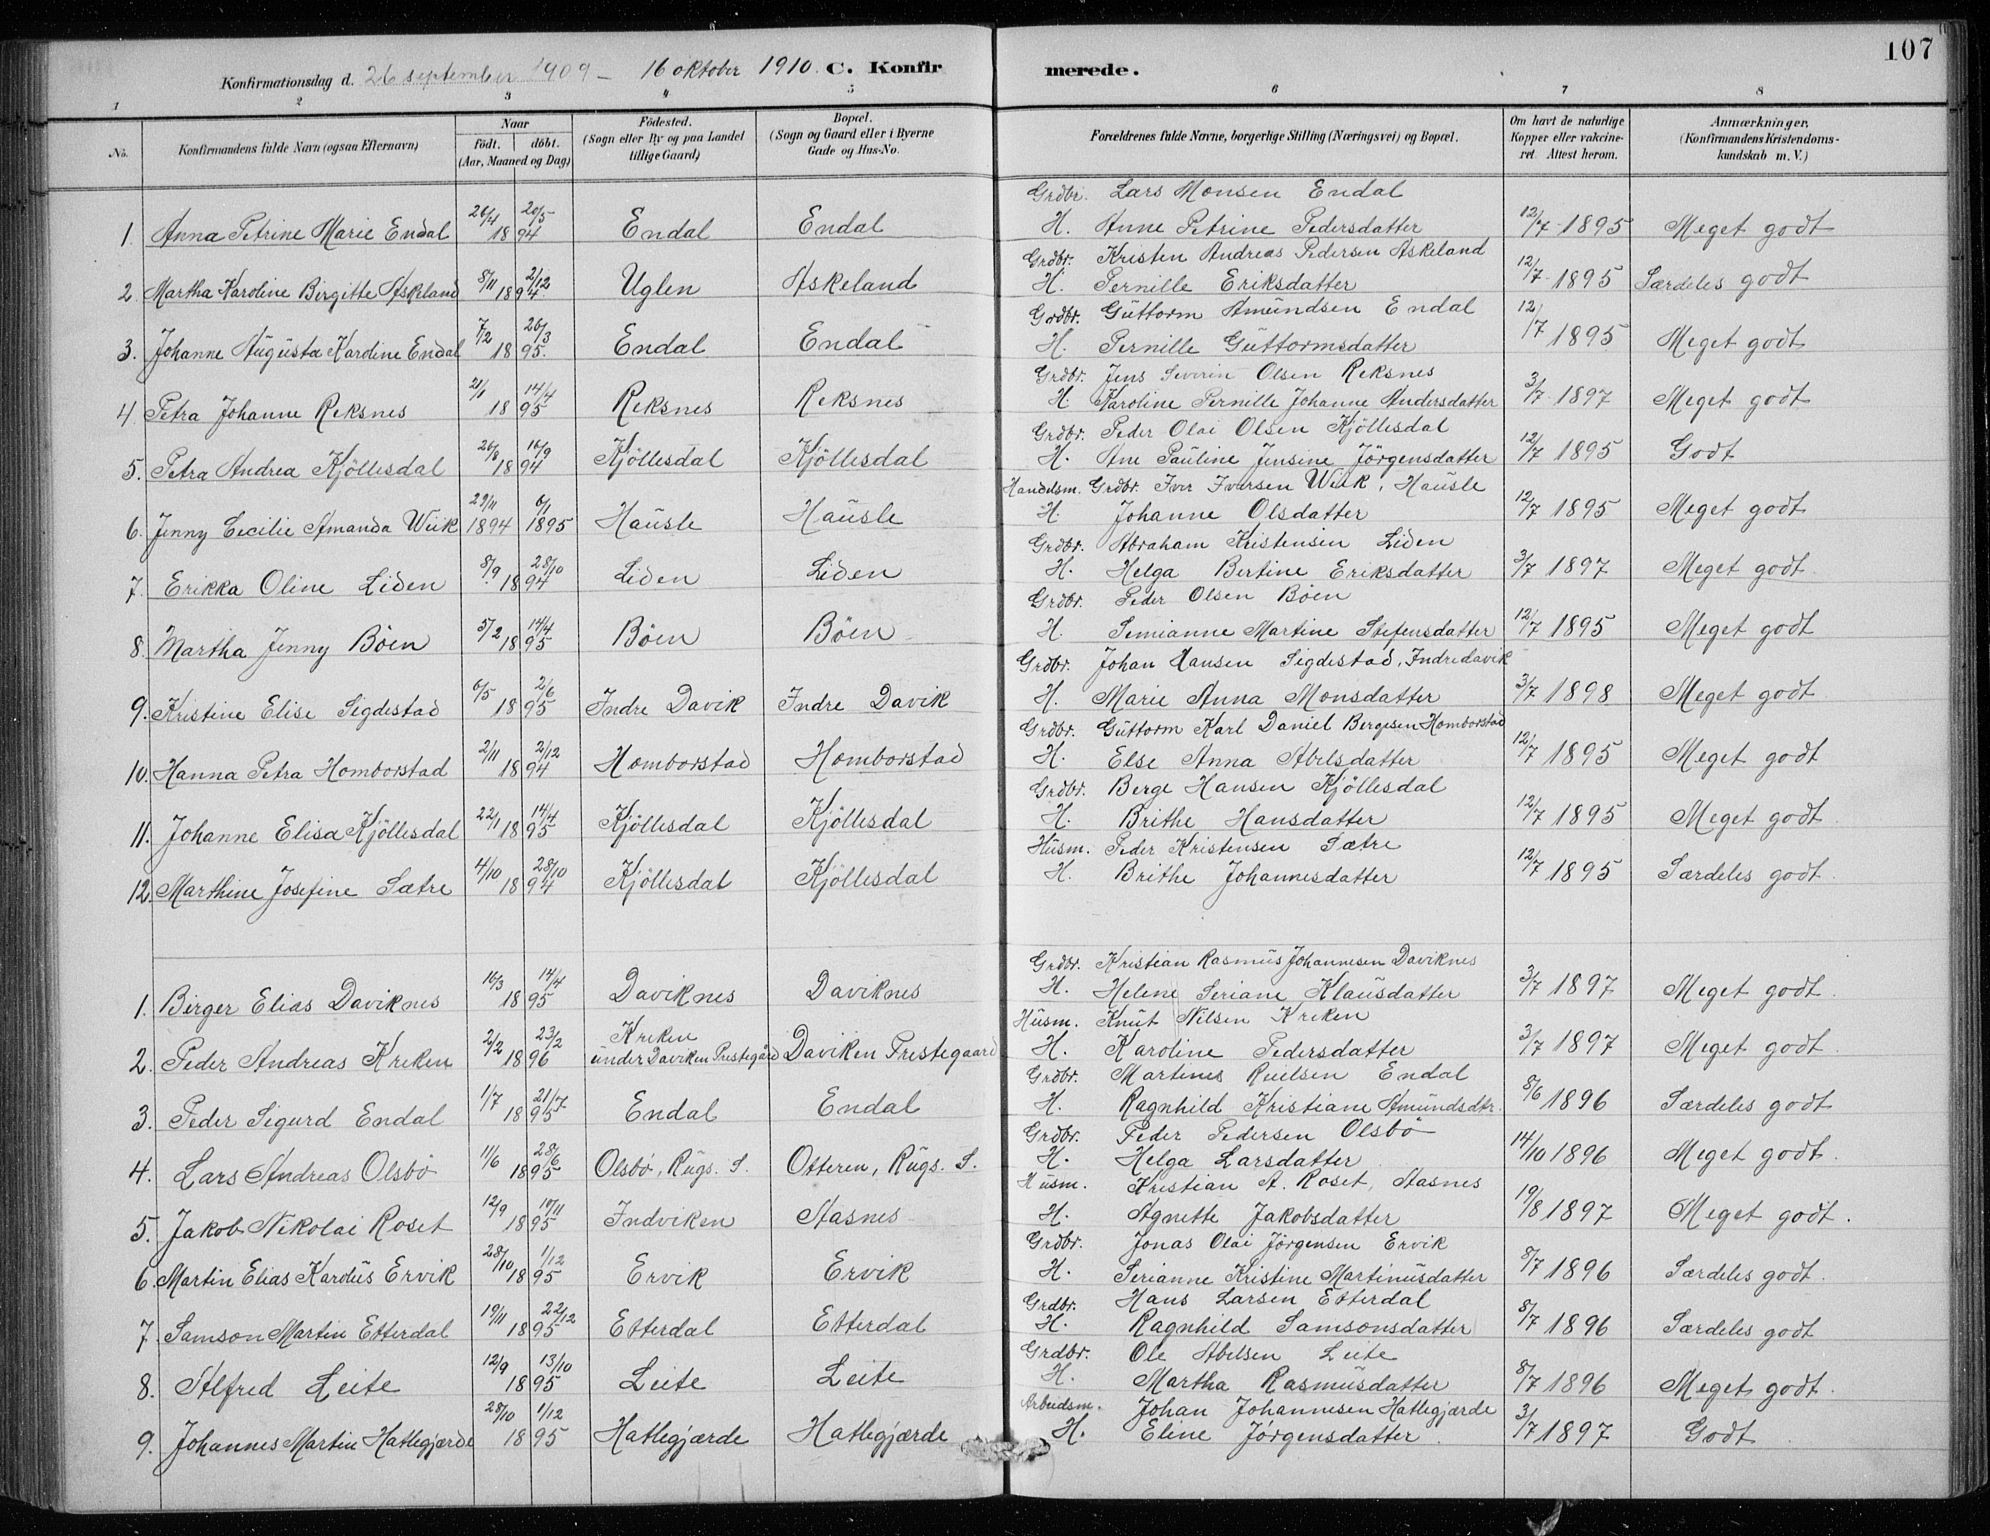 107
Konfirmationsdag d. 26 september 1909 - 16 oktober 1910. C. Konfirmerede.
1 2 3 4 5 6 7 8
No. Konfirmandens fulde Navn (ogsaa Efternavn) Naar födt. döbt. (Aar, Maaned og Dag) Födested. (Sogn eller By og paa Landet tillige Gaard) Bopæl. (Sogn og Gaard eller i Byerne Gade og Hus-No. Forældrenes fulde Navne, borgerlige Stilling (Næringsvei) og Bopæl. Om havt de naturlige Kopper eller vakcineret. Attest herom. Anmærkninger. (Konfirmandens Kristendomskundskab m. V.)
Grdbr. Lars Monsen Endal
1. Anna Petrine Marie Endal 26/4 20/5 1894 Endal Endal H. Anne Petrine Pedersdatter 12/7 1895 Meget godt
Grdbr. Kristen Andreas Pedersen Askeland
2. Martha Karoline Birgitte Askeland 8/11 2/12 1894 Uglen Askeland H. Pernille Eriksdatter 12/7 1895 Særdeles godt
Grdbr. Guttorm Amundsen Endal
3. Johanne Augusta Karoline Endal 7/2 26/3 1895. Endal Endal H. Pernille Guttormsdatter 12/7 1895 Meget godt
Grdbr. Jens Severin Olsen Reksnes
4 Petra Johanne Reksnes 21/1 14/4 1895 Reksnes Reksnes H. Karoline Pernille Johanne Andersdatter 3/7 1897 Meget godt
Grdbr. Peder Olai Olsen Kjöllesdal
5. Petra Andrea Kjöllesdal 26/8 16/9 1894 Kjöllesdal Kjöllesdal H. Ane Pauline Jensine Jörgensdatter 12/7 1895 Godt
Handelsm. Grdbr. Iver Iversen Wiik, Hausle
6. Jenny Cecilie Amanda Wiik 29/11 1894 6/1 1895 Hausle Hausle H. Johanne Olsdatter 12/7 1895 Meget godt
Grdbr. Abraham Kristensen Liden
7. Erikka Oline Liden 8/9 28/10 1894 Liden Liden H. Helga Bertine Eriksdatter 3/7 1897 Meget godt
Grdbr. Peder Olsen Böen
8. Martha Jenny Böen 5/2 14/4 1895 Böen Böen H. Semianne Martine Stefensdatter 12/7 1895 Meget godt
Grdbr. Johan Hansen Sigdestad, Indredavik
9. Kristine Elise Sigdestad 6/5 2/6 1895 Indre Davik Indre Davik H. Marie Anna Monsdatter 3/7 1898 Meget godt
Grdbr. Guttorm Karl Daniel Bergesen Homborstad
10. Hanna Petra Homborstad 2/11 2/12 1894 Homborstad Homborstad H. Else Anna Abelsdatter 12/7 1895 Meget godt
Grdbr. Berge Hansen Kjöllesdal
11. Johanne Elisa Kjöllesdal 22/1 14/4 1895 Kjöllesdal Kjöllesdal H. Brithe Hansdatter 12/7 1895 Meget godt
Husm. Peder Kristensen Sætre
12 Marthine Josefine Sætre 4/10 28/10 1894 Kjöllesdal Kjöllesdal H. Brithe Johannesdatter 12/7 1895 Særdeles godt.
Grdbr. Kristian Rasmus Johannesen Daviknes
1. Birger Elias Daviknes 16/3 14/4 1895 Daviknes Daviknes H. Helene Seriane Klausdatter 3/7 1897 Meget godt.
Husm. Knut Nilsen Kreken
2. Peder Andreas Kreken 2/2 23/2 1896 Kreken under Daviken Prestegård Daviken Prestegaard H. Karoline Pedersdatter 3/7 1897 Meget godt.
Grdbr. Martines Endal
3. Peder Sigurd Endal 1/7 21/7 1895 Endal Endal H. Ragnhild Kristiane Amundsdtr. 8/6 1896 Særdeles godt
Grdbr. Peder Pedersen Olsbö
4. Lars Andreas Olsbö 11/6 28/6 1895 Olsbö, Rugs. S. Otteren, Rugs. S. H. Helga Larsdatter 14/10 1896 Meget godt.
Husm. Kristian A. Roset, Aasnes
5. Jakob Nikolai Roset 12/9 10/11 1895 Indviken Aasnes H. Agnette Jakobsdatter 19/8 1897 Meget godt.
Grdbr. Jonas Olai Jörgensen Ervik
6. Martin Elias Karolus Ervik 28/10 1/12 1895 Ervik Ervik H. Serianne Kristine Martinusdatter 8/7 1896 Særdeles godt.
Grdbr. Hans Larsen Etterdal
7. Samson Martin Etterdal 19/11 22/12 1895 Etterdal Etterdal H. Ragnhild Samsonsdatter 8/7 1896 Særdeles godt
Grdbr. Ole Abelsen Leite
8. Alfred Leite 12/9 13/10 1895 Leite Leite H. Martha Rasmusdatter 8/7 1896 Meget godt.
Arbeidsm. Johan Johannesen Hatlegjærde
9. Johannes Martin Hatlegjærde 28/10 1/12 1895 Hatlegjærde Hatlegjærde H. Eline Jörgensdatter. 3/7 1897 Godt